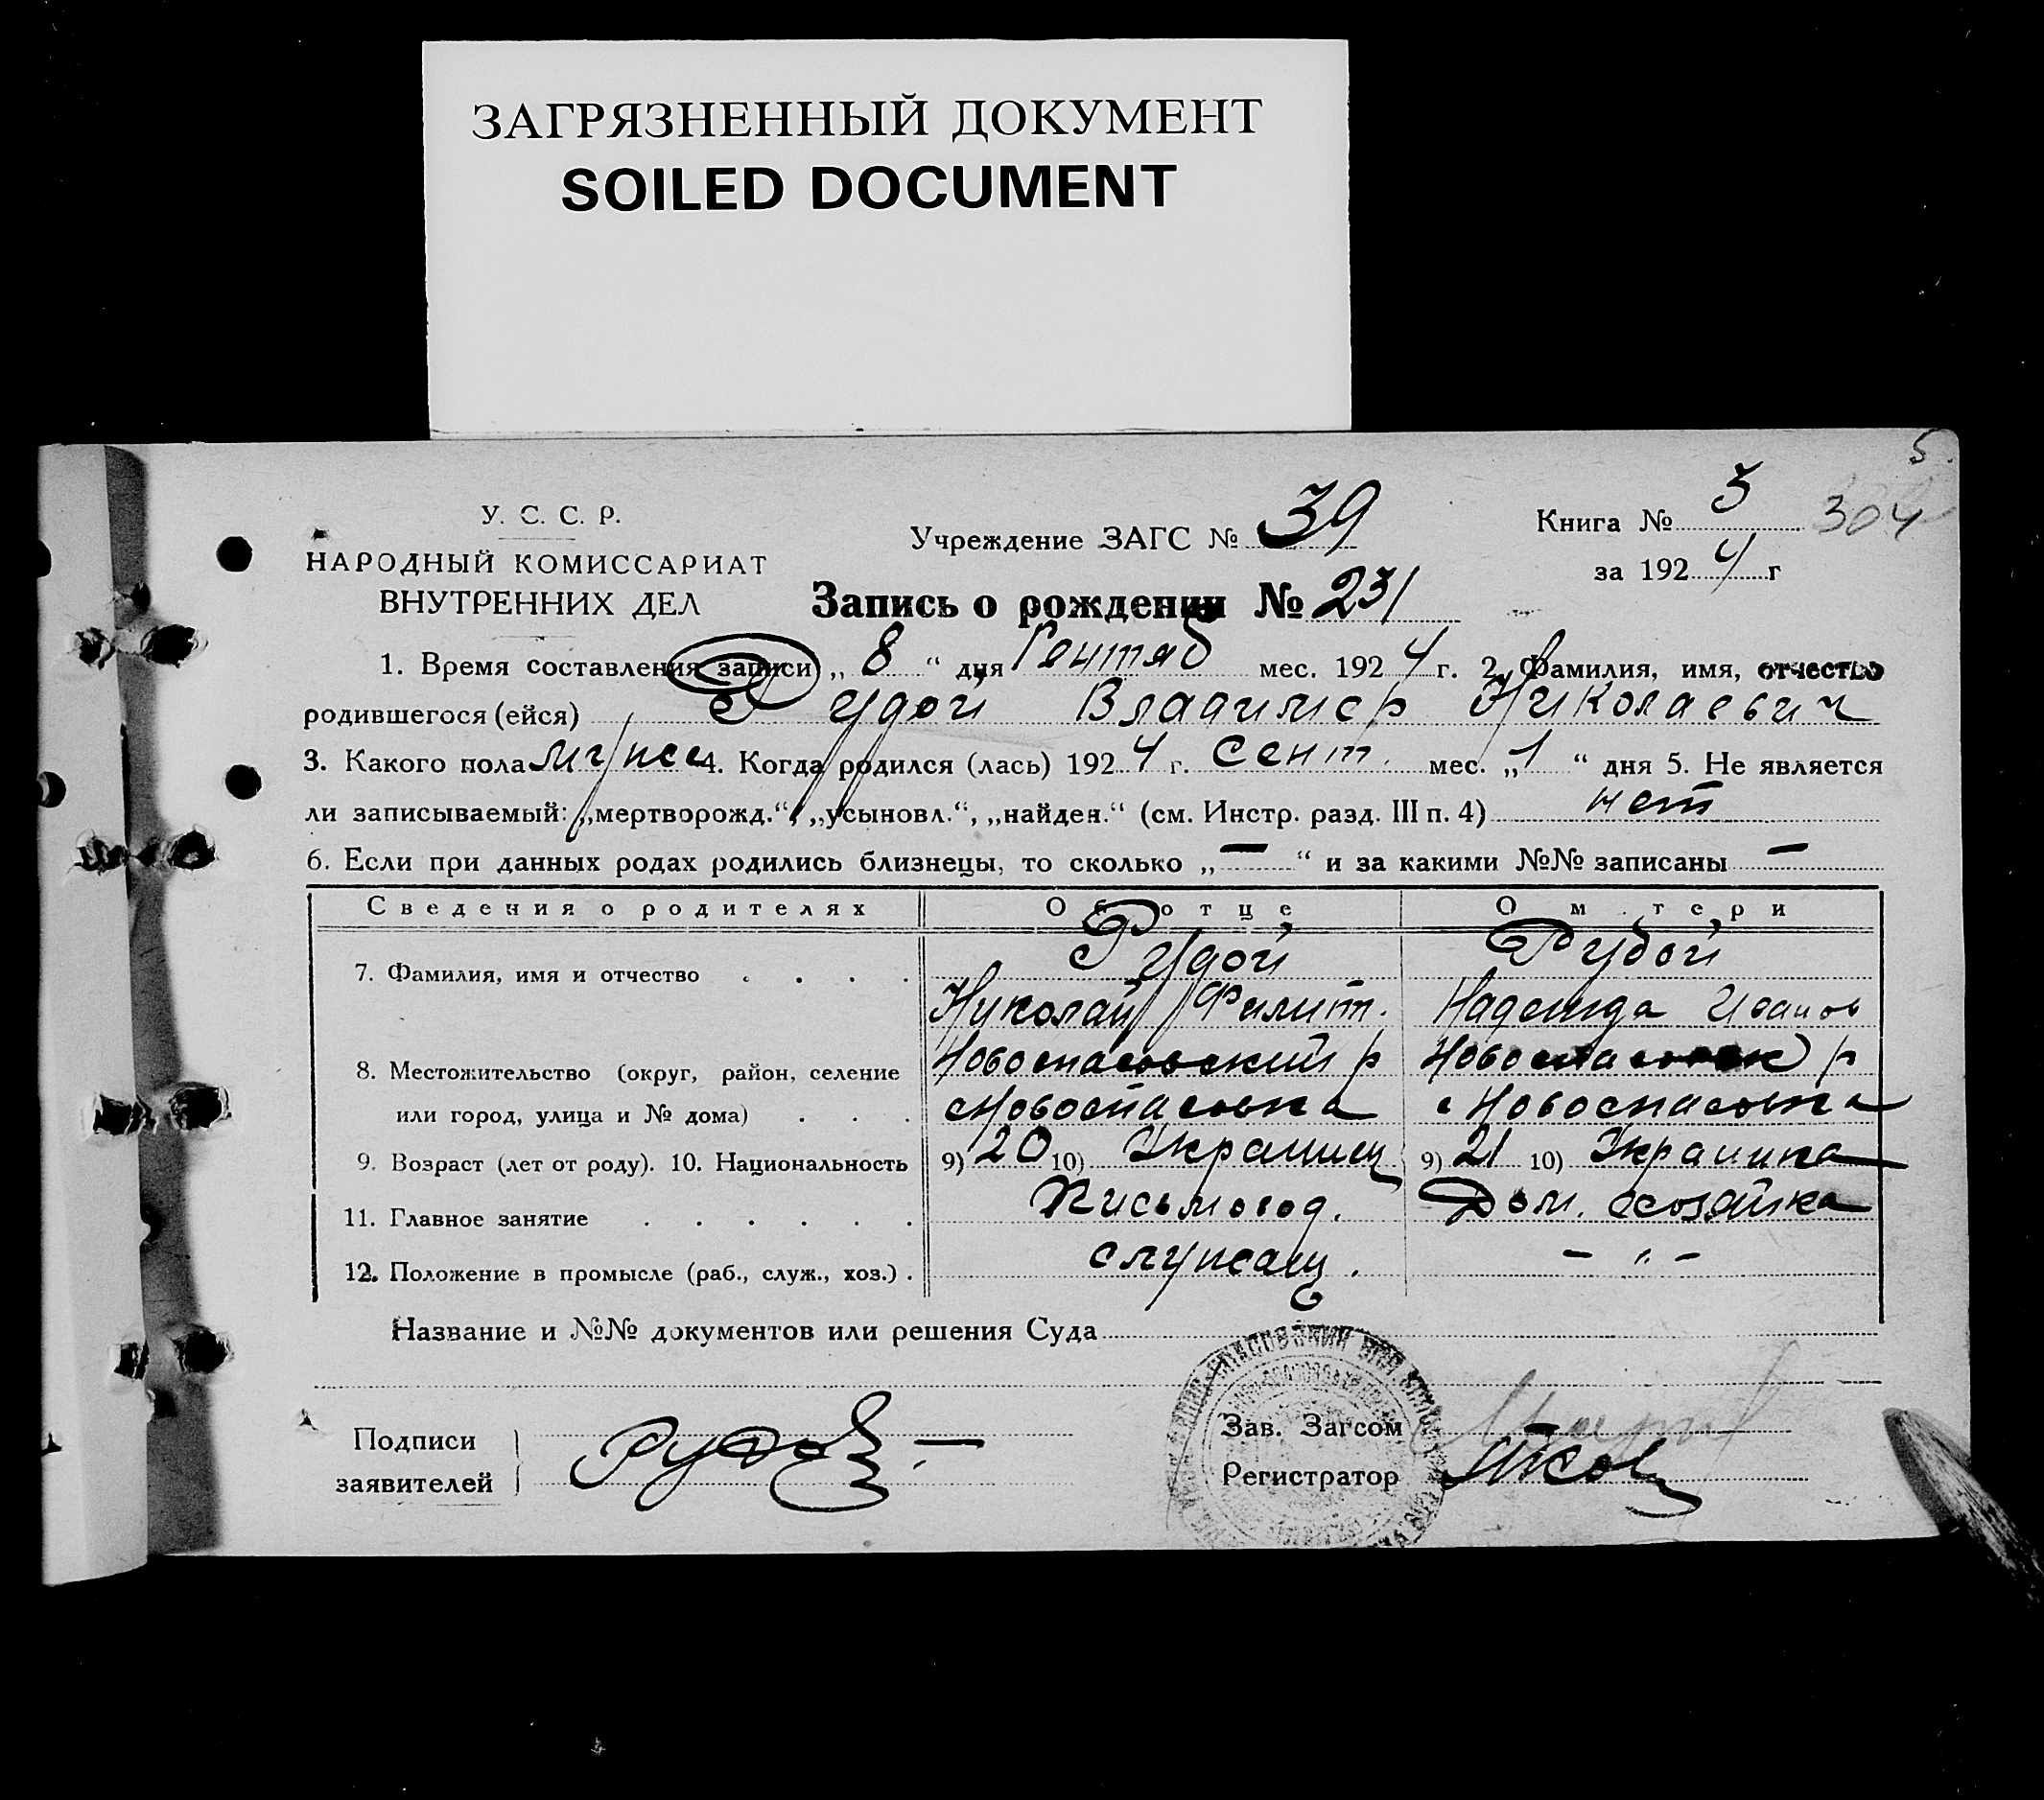 ЗАГРЯЗНЕННЫЙ ДОКУМЕНТ
SOILED DOCUMENT
5.
У. С. С. Р.
НАРОДНЫЙ КОМИССАРИАТ
ВНУТРЕННИХ ДЕЛ
Учреждение ЗАГС № 39
Книга № 3 304
за 1924 г
Запись о рождении № 231
1. Время составления записи „ 8 “ дня Сентяб мес. 1924 г. 2. Фамилия, имя, отчество
родившегося (ейся) Рудой Владимир Николаевич
3. Какого пола мужс 4. Когда родился (лась) 1924 г. сент. мес. „ 1 “ дня 5. Не является
ли записываемый: „мертворожд.“, „усыновл.“, „найден.“ (см. Инстр. разд. III п. 4) нет
6. Если при данных родах родились близнецы, то сколько „ — “ и за какими №№ записаны —
Сведения о родителях Об отце О м т е р и
7. Фамилия, имя и отчество . . . . Рудой Рудой
Николай Филип. Надежда Иванов
8. Местожительство (округ, район, селение Новоспасовский р Новоспасовск р
или город, улица и № дома) . . . с Новоспасовка с Новоспасовка
9. Возраст (лет от роду). 10. Национальность 9) 20 10) Украинец 9) 21 10) Украинка
11. Главное занятие . . . . . . Письмовод. Дом. хозяйка
12. Положение в промысле (раб., служ., хоз.) . служащ. - " -
Название и №№ документов или решения Суда
Подписи
заявителей
Рудой
Зав. Загсом
Регистратор